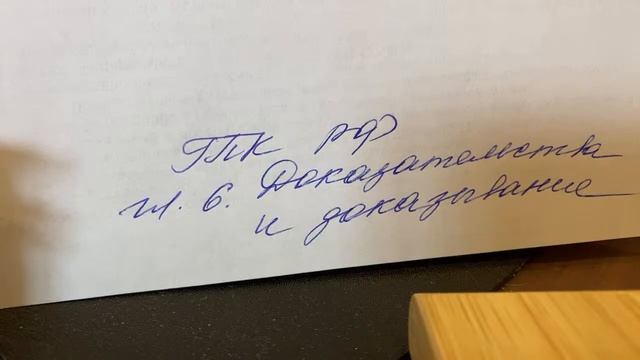 ГПК РФ
гл. 6. Доказательства
и доказывание